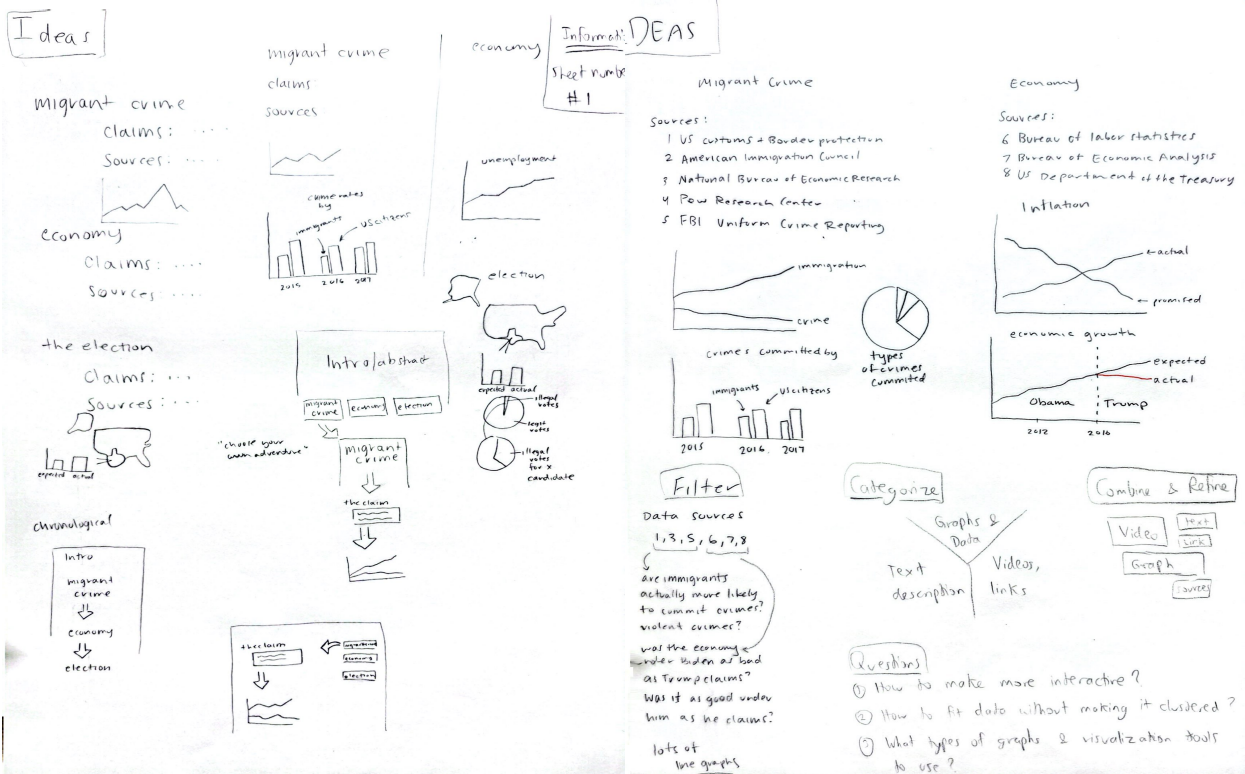 Ideas
migrant crime
claims: ....
Sources: ....
economy
Claims: ....
Sources: ....
the election
Claims: ...
Sources: ...
expected actual
chronological
Intro
migrant
crime
economy
election
migrant crime
claims
sources
crime rates
by
immigrants
US citizens
2015 2016 2017
economy
unemployment
election
expected actual
illegal
votes
legal
votes
illegal
votes
for x
candidate
Intro/abstract
migrant
crime
economy
election
"choose your
own adventure"
migrant
crime
the claim
the claim
migration
economy
election
Informati
Sheet numbe
#1
DEAS
Migrant Crime
Sources:
1 US customs + Border protection
2 American Immigration Council
3 National Bureau of Economic Research
4 Pew Research Center
5 FBI Uniform Crime Reporting
immigration
crime
types
of crimes
commited
crimes committed by
immigrants
US citizens
2015 2016 2017
Economy
Sources:
6 Bureau of labor statistics
7 Bureau of Economic Analysis
8 US Department of the Treasury
Inflation
actual
promised
economic growth
expected
actual
Obama Trump
2012 2016
Filter
Data sources
1, 3, 5, 6, 7, 8
are immigrants
actually more likely
to commit crimes?
violent crimes?
was the economy
under Biden as bad
as Trump claims?
Was it as good under
him as he claims?
lots of
line graphs
Categorize
Graphs &
Data
Text
description
Videos,
links
Combine & Refine
Video
text
link
Graph
sources
Questions
① How to make more interactive?
② How to fit data without making it clustered?
③ What types of graphs & visualization tools
to use?